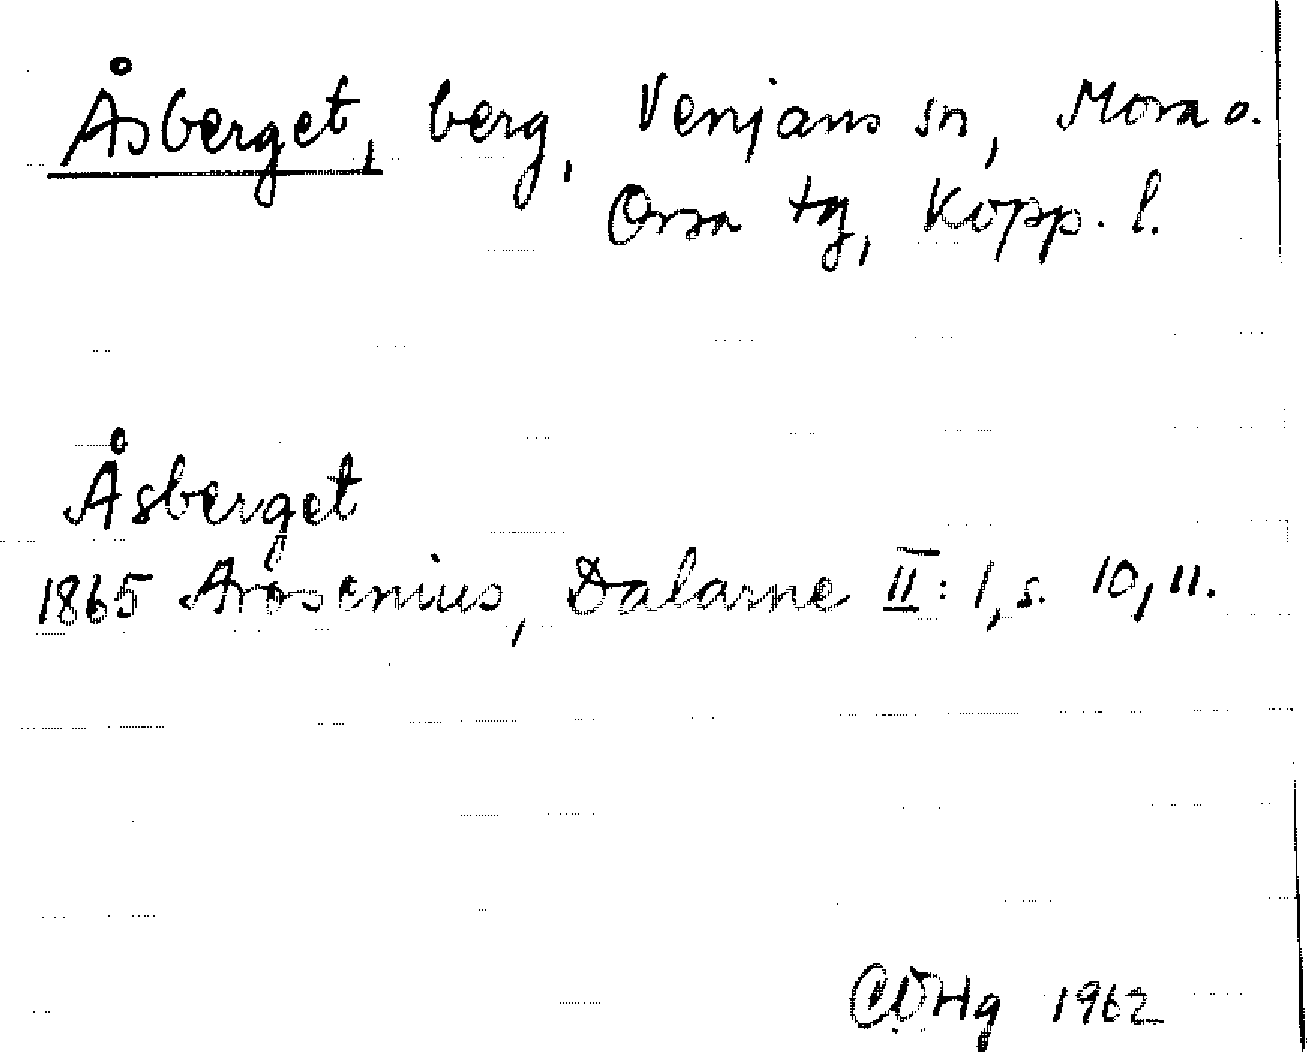 Åsberget, berg, Venjans sn, Mora o.
Orsa tg, Kopp. l.
Åsberget
1865 Arosenius, Dalarne II: 1, s. 10, 11.
1962